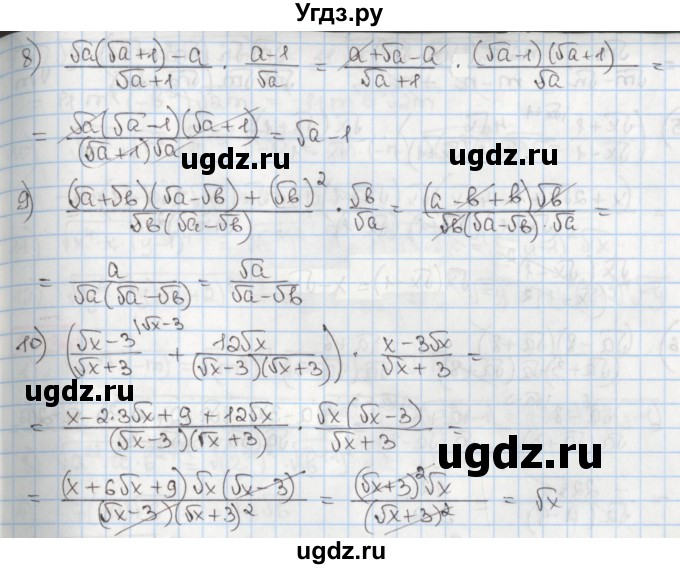 Угдз.ру
8) (√a(√a+1)-a)/(√a+1) · (a-1)/√a = (a+√a-a)/(√a+1) · ((√a-1)(√a+1))/√a =
= (√a(√a-1)(√a+1))/((√a+1)√a) = √a-1
ugdz.ru ugdz.ru
9) ((√a+√b)(√a-√b)+(√b)²)/(√b(√a-√b)) · √b/√a = ((a-b+b)√b)/(√b(√a-√b)·√a) =
= a/(√a(√a-√b)) = √a/(√a-√b)
ugdz.ru
10) ((√x-3)/(√x+3) \√x-3 + 12√x/((√x-3)(√x+3))) · (x-3√x)/(√x+3) =
ugdz.ru
= (x-2·3√x+9+12√x)/((√x-3)(√x+3)) · (√x(√x-3))/(√x+3) =
= ((x+6√x+9)√x(√x-3))/((√x-3)(√x+3)²) = ((√x+3)²√x)/((√x+3)²) = √x
ugdz.ru ugdz.ru